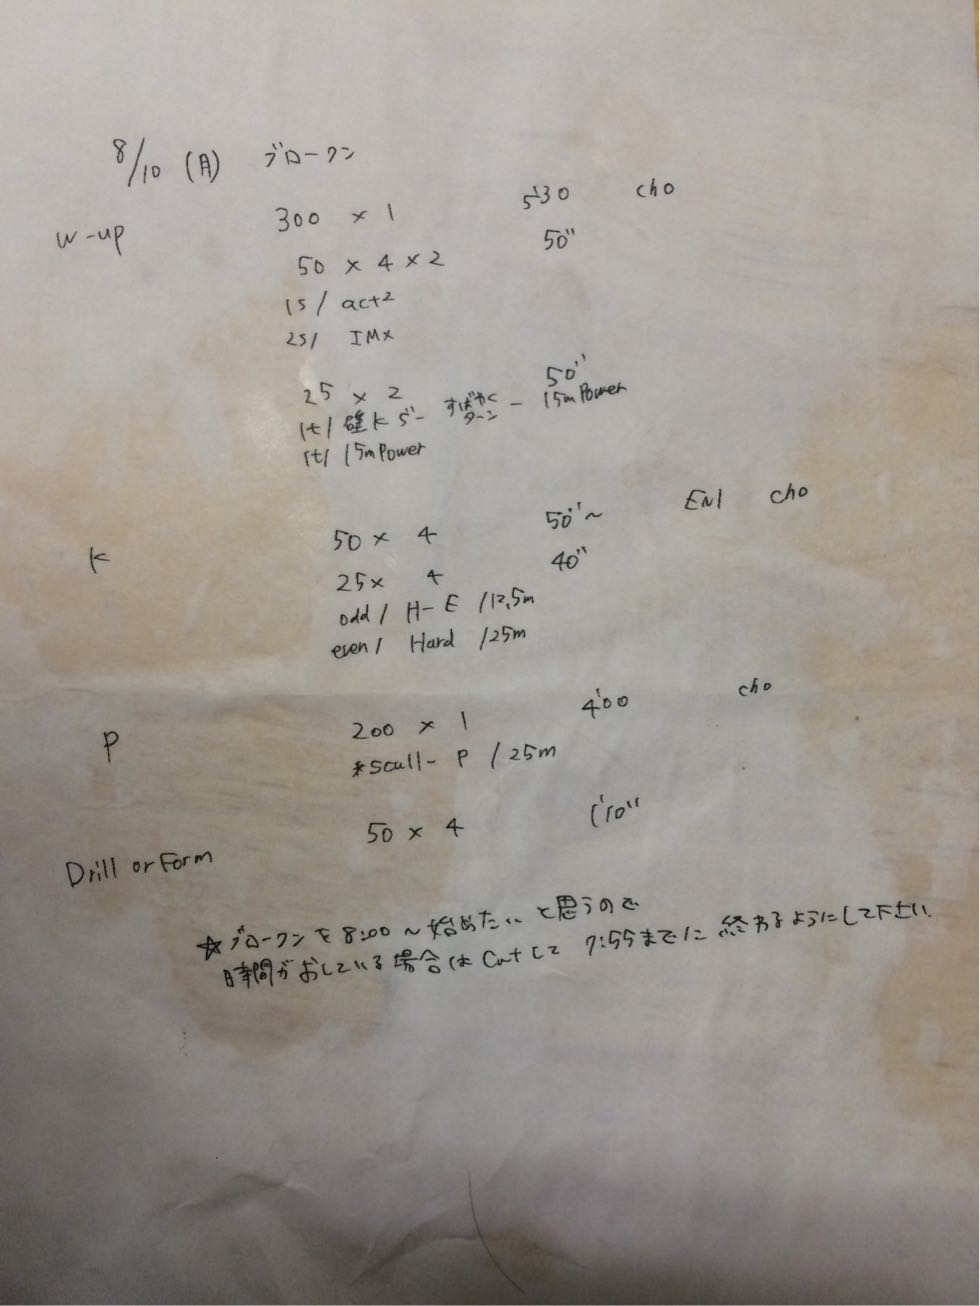 8/10 (月) ブロークン
W-up 300 × 1 5'30 cho
50 × 4 × 2 50"
1s/ act2
2s/ IMx
25 × 2 50"
1t/ 壁k 5m- すばやくターン - 15m Power
1t/ 15m Power
K 50 × 4 50"~ EN1 cho
25 × 4 40"
odd/ H-E /12.5m
even/ Hard /25m
P 200 × 1 4'00 cho
*scull- P /25m
Drill or Form 50 × 4 1'10"
☆ブロークンを8:00~始めたいと思うので
時間がおしている場合はCutして 7:55までに終わるようにして下さい.